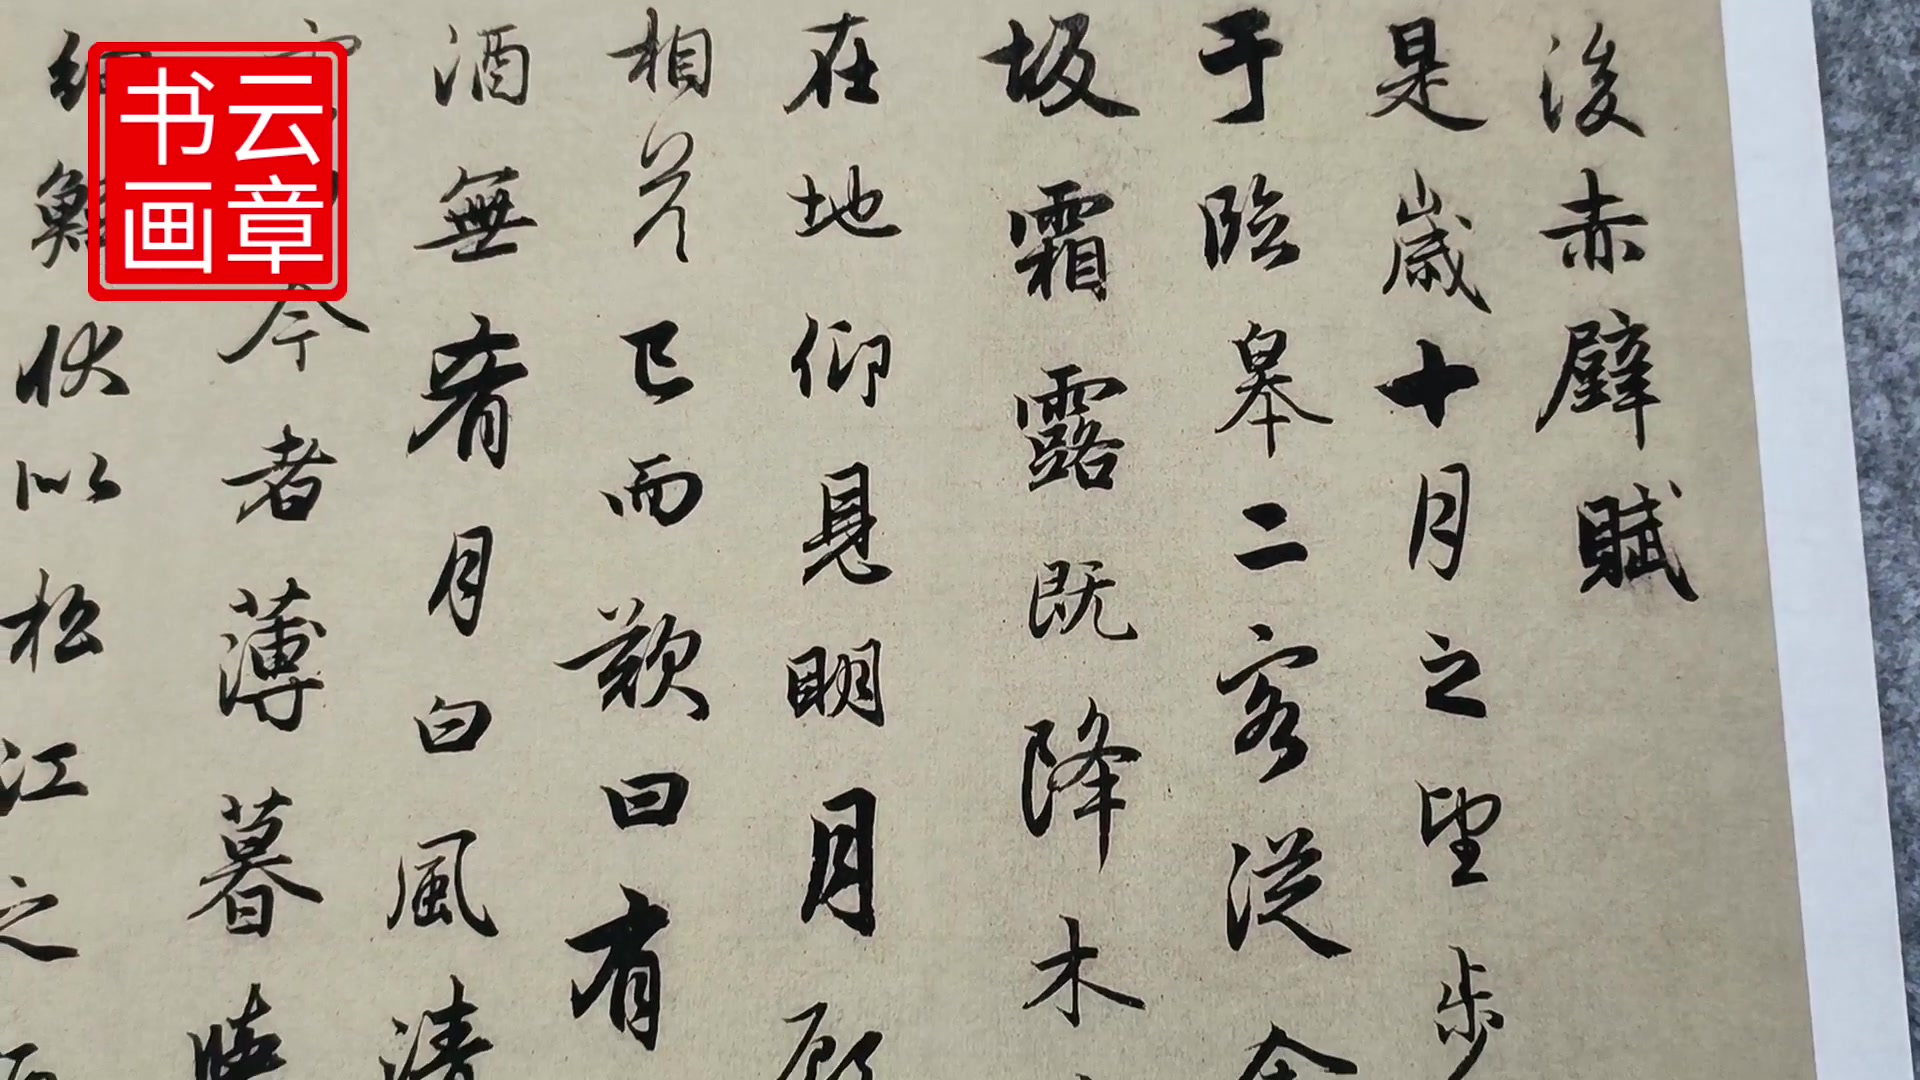 後赤壁賦
是歲十月之望步
于臨皋二客從余
坂霜露既降木
在地仰見明月顧
相答已而歎曰有
酒無肴月白風清
今者薄暮
細鱗状似松江之
云章
书画